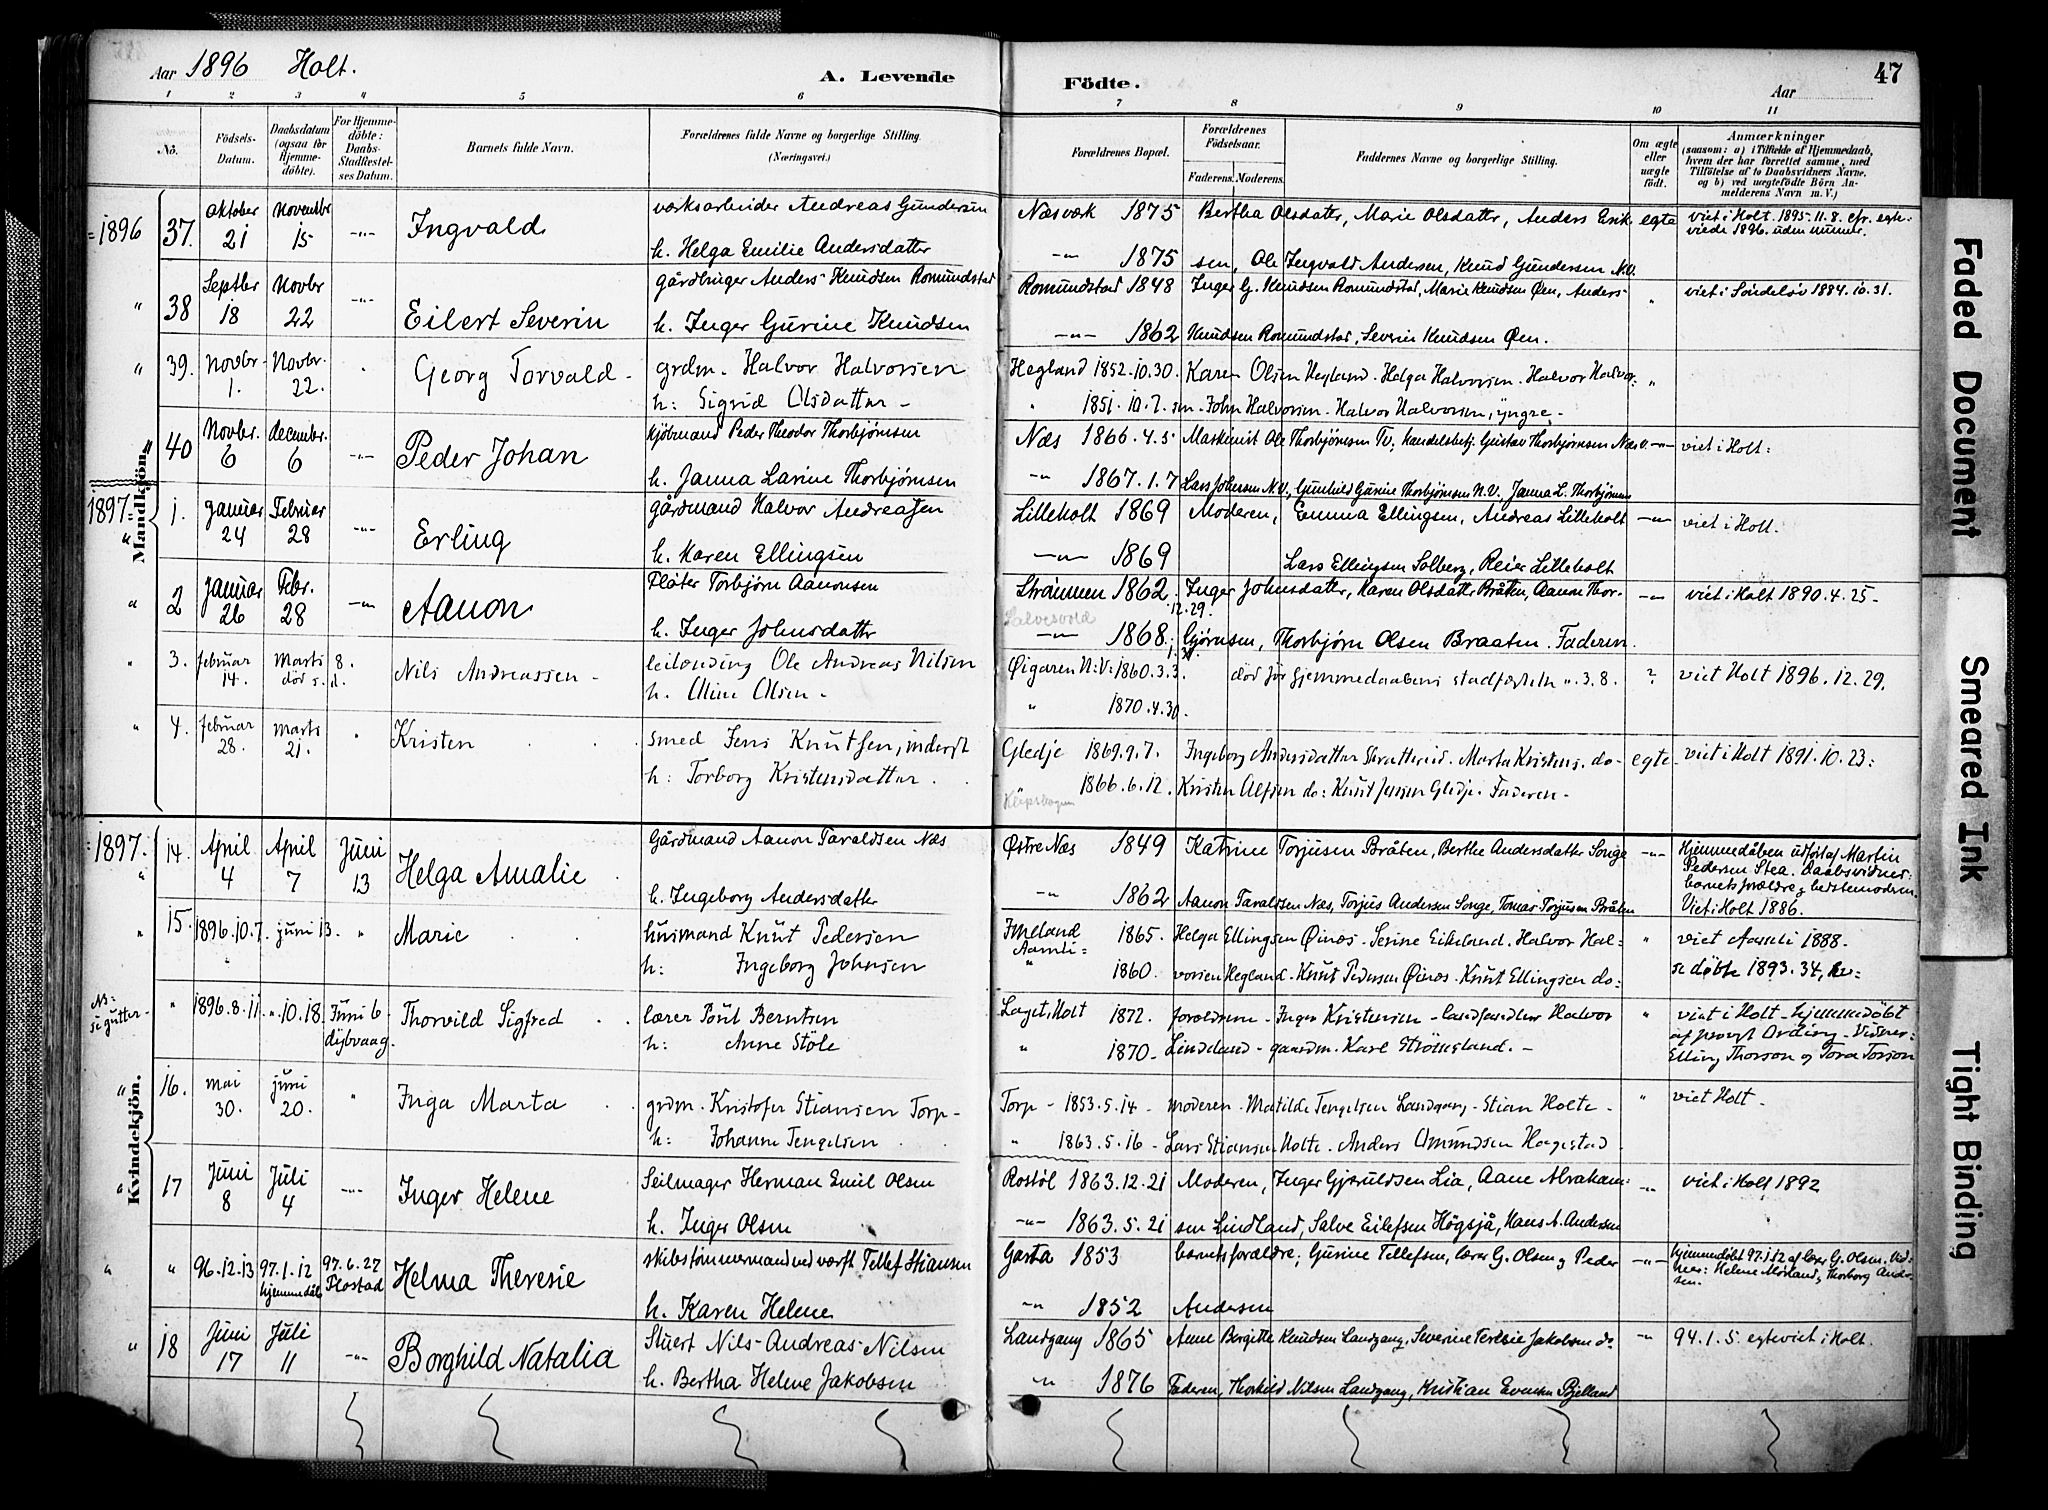 Aar 1896 Holt. A. Levende Födte. Aar 47
1 2 3 4 5 6 7 8 9 10 11
No. Födsels-Datum. Daabsdatum (ogsaa for Hjemme-döbte). For Hjemme-döbte: Daabs-Stadfæstel-ses Datum. Barnets fulde Navn. Forældrenes fulde Navne og borgerlige Stilling. (Næringsvei.) Forældrenes Bopæl. Forældrenes Födselsaar. Faderens. Moderens. Faddernes Navne og borgerlige Stilling. Om ægte eller uægte födt. Anmærkninger (saasom: a) i Tilfælde af Hjemmedaab, hvem der har forrettet samme, med Tilföielse af to Daabsvidners Navne, og b) ved uægtefödte Börn An-melderens Navn m. V.)
Mandkjön.
1896 37. Oktober 21 Novembr 15 -"- Ingvald værksarbeider Andreas Gundersen Næsværk 1875 Bertha Olsdatter, Marie Olsdatter, Anders Erik egte viet i Holt. 1895.11.8. cfr. egte-
viede 1896. uden nummer.
h. Helga Emilie Andersdatter -"- 1875 sen, Ole Ingvald Andersen, Knud Gundersen N.V.
" 38 Septbr 18 Novbr 22 -"- Eilert Severin gårdbruger Anders Knudsen Romundstad Romundstad 1848 Inger G. Knudsen Romundstad, Marie Knudsen Øen, Anders " viet i Söndeløv 1884.10.31.
h. Inger Gurine Knudsen -"- 1862 Knudsen Romundstad, Severin Knudsen Øen.
" 39. Novbr. 1. Novbr. 22. Georg Torvald grdm. Halvor Halvorsen Hegland 1852.10.30. Karen Olsen Hegland. Helga Halvorsen. Halvor Halvor: "
h: Sigrid Olsdatter " 1851.10.7. sen. John Halvorsen. Halvor Halvorsen, yngre.
" 40 Novbr. 6 decembr. 6 -"- Peder Johan Kjöbmand Peder Theodor Thorbjörnsen Næs 1866.4.5 Maskinist Ole Thorbjörnsen Tv; handelsbetj. Gustav Thorbjörnsen Næs v. -"- viet i Holt:
h. Janna Larine Thorbjörnsen -"- 1867.1.7 Lars N.V., Gunhild Gurine Thorbjörnsen N.V. Janna L. Thorbjörnsen
1897 1. Januar 24 Februar 28 -"- Erling gårdmand Halvor Andreassen Lilleholt 1869 Moderen, Emma Ellingsen, Andreas Lilleholt -"- viet i Holt.
h. Karen Ellingsen -"- 1869 Lars Ellingsen Solberg, Reier Lilleholt
" 2 Januar 26 Febr. 28 -"- Aanon Torbjörn Aanonsen Strømmen 1862 12.29. Inger Johnsdatter, Karen Olsdatter Bråten, Aanon Thor- -"- viet i Holt 1890.4.25-
h. Inger Johnsdatter -"- 1868. bjørnsen, Thorbjørn Olsen Braaten. Faderen.
" 3. februar 14. Marts 8. död s. d. Nils Andreassen leilending Ole Andreas Nilsen Øigaren N:V: 1860.3.3. död før hjemmedaabens stadfæstelse. 3.8. ? viet Holt 1896.12.29.
h. Oline Olsen " 1870.4.30.
" 4. februar 28. Marts 21. " Kristen smed Jens Knutsen, inderst Gledje 1869.9.7. Ingeborg Andersdatter Marta Kristens. do- egte. viet i Holt 1891.10.23:
h: Torborg Kristensdatter. " 1866.6.12. Kristen Alfsen do: Knut Jensen Gledje. Faderen.
Kvindekjön.
1897. 14. April 4 April 7 Juni 13 Helga Amalie Gårdmand Aanon Taraldsen Næs Østre Næs 1849 Katrine Torjusen Bråten, Berthe Andersdatter Songe -"- Hjemmedåben udført af Martin
Pedersen Stea. Daabsvidner:
barnets forældre og bestemoderen.
h. Ingeborg Andersdatter " 1862 Aanon Taraldsen Næs, Torjus Andersen Songe, Tomas Torjusen Bråten Viet i Holt 1886.
" 15. 1896.10.7. juni 13. " Marie husmand Knut Pedersen Aamli: 1865. Helga Ellingsen Øinæs. Serine Eikeland. Halvor Hal: " viet Aamli 1888.
h: Ingeborg Johnsen " 1860. vorsen Hegland. Knut Pedersen Øinæs. Knut Ellingsen do: se döbte 1893.34,
NB: se gutter. " 1896.8.11. ". 10.18 Juni 6 dybvaag. Thorvild Sigfred lærer Berntsen Laget, Holt 1872. forældrene. Inger Kristensen. landhandler Halvor " viet i Holt. hjemmedöbt
af provst Ording. Vidner:
h: Anne Støle " 1870. Lindland. gaardm. Karl Strömsland. Elling Thorson og Tora Torson
" 16. Mai 30. juni 20. " Inga Marta grdm. Kristofer Stiansen Torp. Torp 1853.5.14. moderen. Matilde Tengelsen Landgang. Stian Holte. " viet Holt.
h: Johanne Tengelsen " 1863.5.16. Lars Stiansen Holte. Anders Omundsen Hagestad.
" 17 Juni 8 Juli 4 -"- Inger Helene Seilmager Herman Emil Olsen Rostöl 1863.12.21 Moderen, Inger Gjeruldsen Lia, Aane Abraham: -"- viet i Holt 1892
h. Inger Olsen -"- 1863.5.21 sen Lindland, Salve Eilefsen Högsjå, Hans A. Andersen
" " 96.12.13 97.1.12 hjemmedöb 97.6.27 Flostad Helma Theresie skibstömmermand ved værft Tellef Stiansen Garta 1853 barnets forældre; Gurine Tellefsen, lærer G. Olsen og Peder -"- hjemmedöbt 97.1.12 af lærer G. Olsen. Vid-
ner: Helene Mörland, Thorborg Ander-
sen.
h. Karen Helene " 1852 Andersen
" 18 Juni 17 Juli 11 -"- Borghild Natalia Stuert Nils Andreas Nilsen Landgang 1865 Anne Birgitte Knudsen Landgang, Severine Terese Jakobsen do -"- 94.1.5. egteviet i Holt.
h. Bertha Helene Jakobsen " 1876 Faderen, Thorkild Nilsen Landgang, Kristian Evensen Bjelland
Faded Document
Smeared Ink
Tight Binding